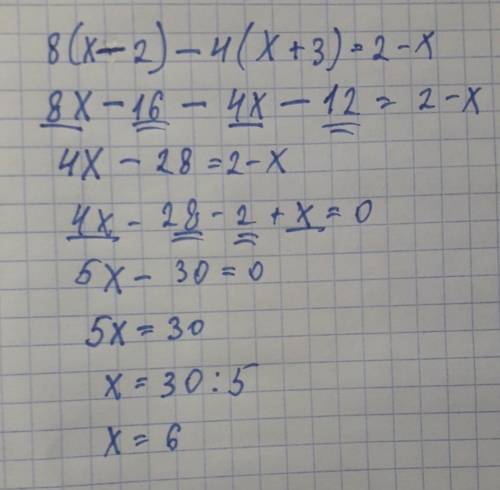 8(x-2)-4(x+3)=2-x
8x-16-4x-12=2-x
4x-28=2-x
4x-28-2+x=0
5x-30=0
5x=30
x=30:5
x=6